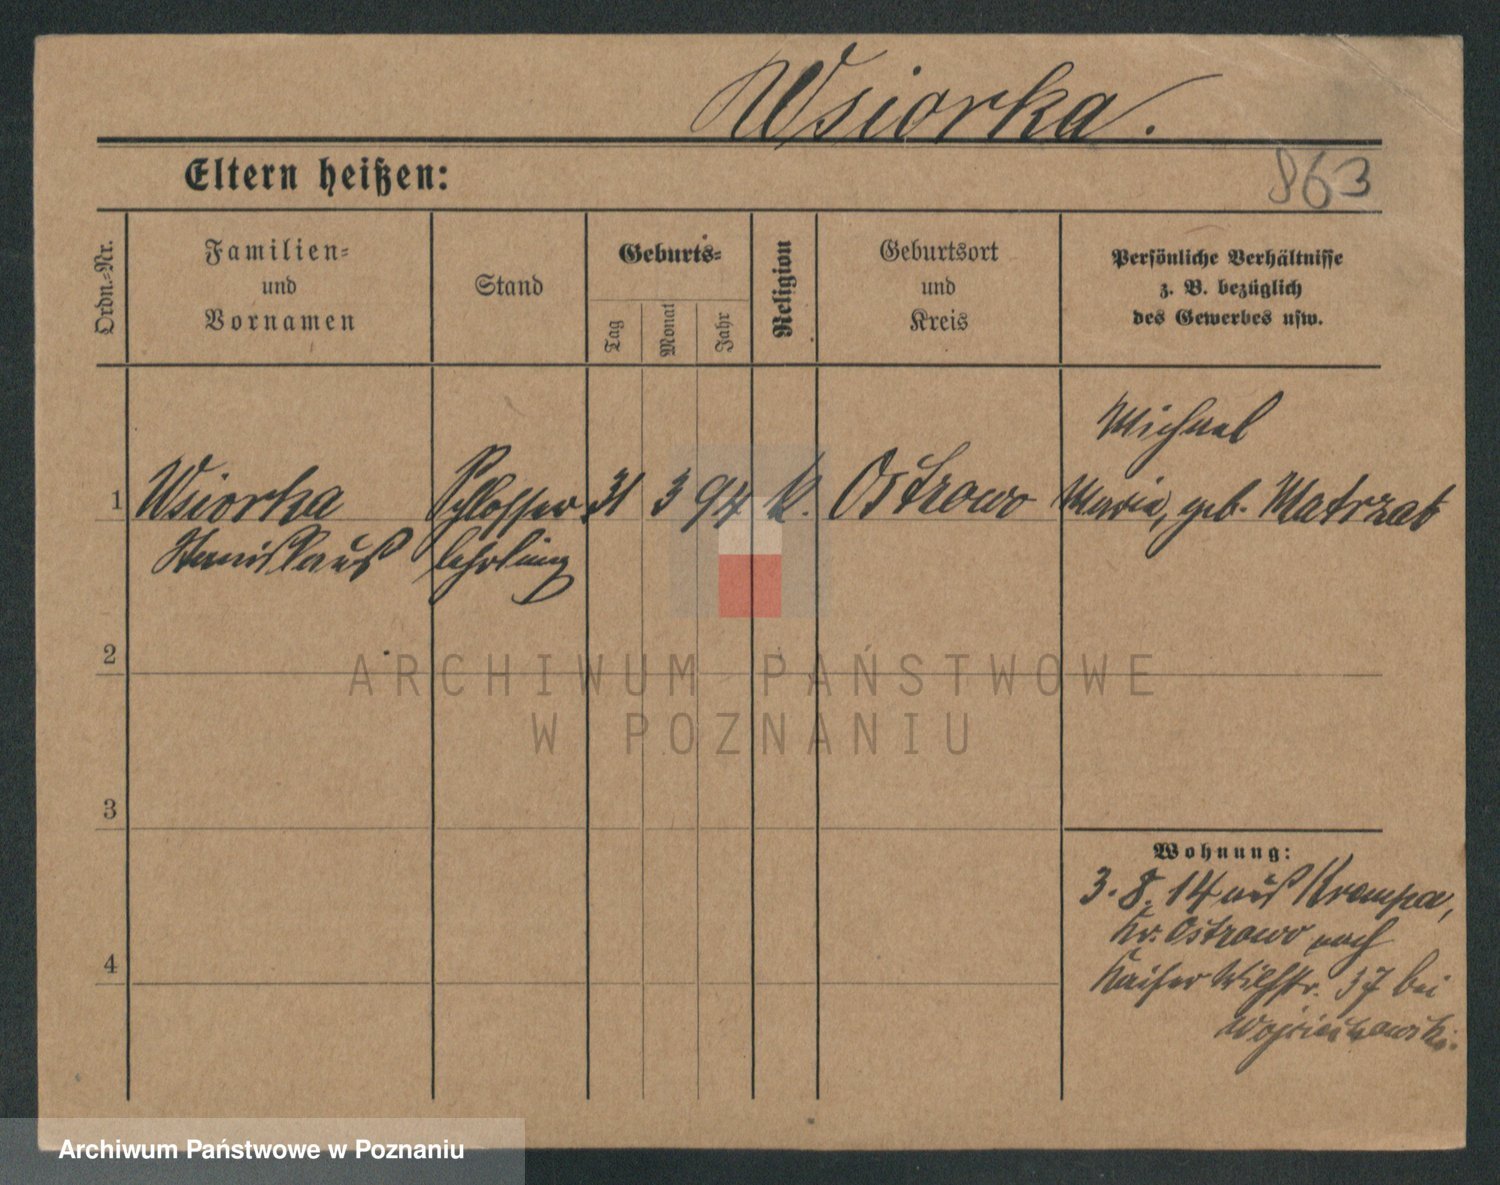 Wsiorka.
Eltern heißen:
863
Ordn.-Nr.
Familien-
und
Vornamen
Stand
Geburts-
Tag
Monat
Jahr
Religion
Geburtsort
und
Kreis
Persönliche Verhältnisse
z. B. bezüglich
des Gewerbes usw.
Michael
1 Wsiorka Schlosser 31 3 94 k. Ostrowo Maria, geb. Matrzak
Stanislaus lehrling
2
ARCHIWUM PAŃSTWOWE
W POZNANIU
3
Wohnung:
3. 8. 14 aus Krempa,
Kr. Ostrowo nach
4
Kaiser Wilhstr. 37 bei
Wojciechowski.
Archiwum Państwowe w Poznaniu